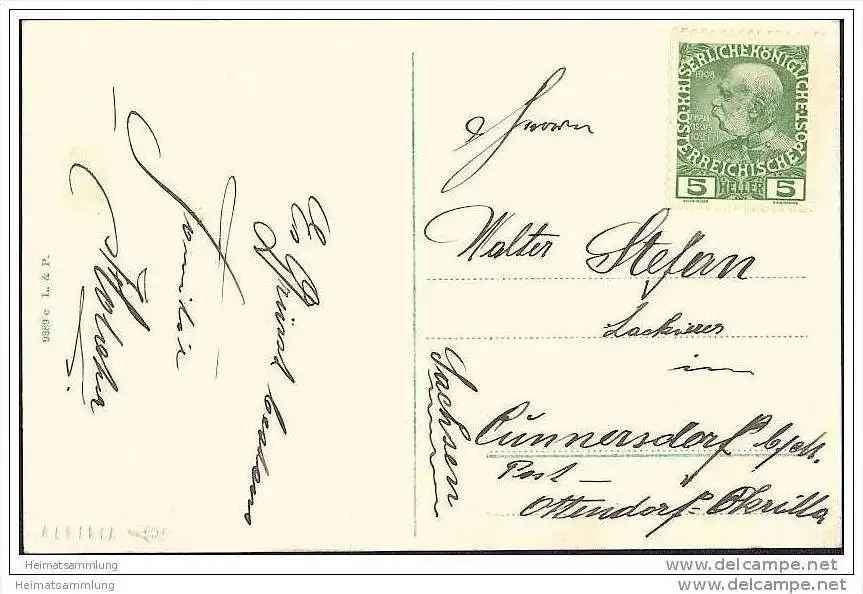 Es Grüsst bestens
Familie
9989 c L. & P.
Herrn
Walter Stefan
Lackierer
in
Cunnersdorf b/M.
Post
Ottendorf=Okrilla
Sachsen
KAISERLICHE KÖNIGLICHE ÖSTERREICHISCHE POST
1908
5 HELLER 5
Heimatsammlung
Heimatsammlung
www.delcampe.net
www.delcampe.net